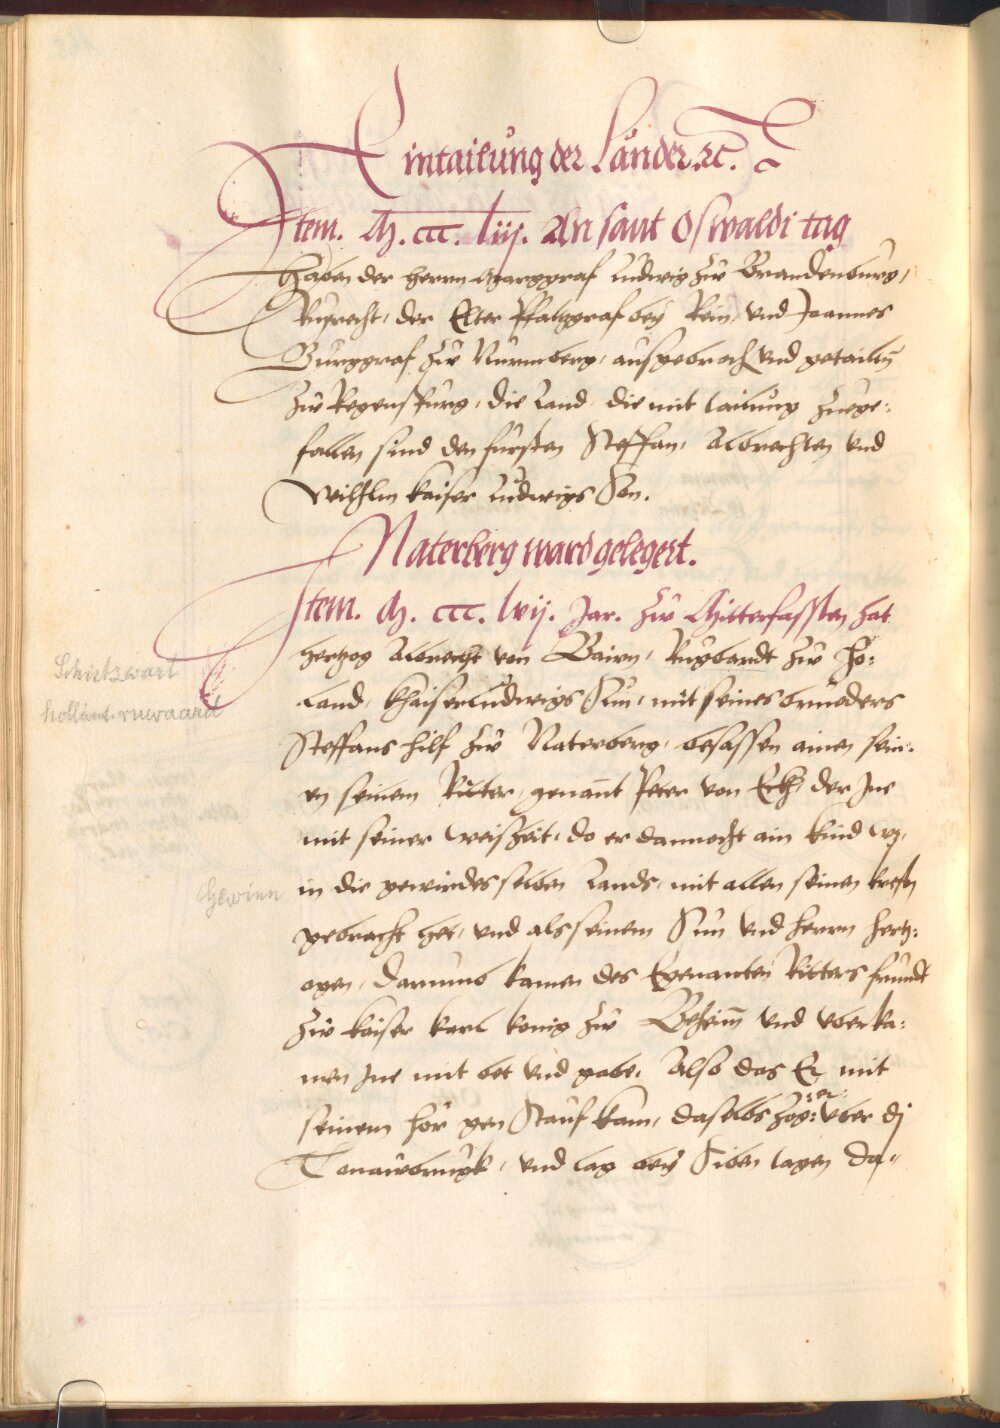 Eintailung der Länder. ꝛc.
Item. M. ccc. liij. An sant Oswaldi tag
Haben der herrn Marggraf Ludwig zů Brandenburg,
Ruprecht, der Elter Pfaltzgraf bey Rein, vnd Joannes
Burggraf zů Nürmberg, aufgebroch vnd getailt
zů Regenspurg, die Land, die mit tailung zuege:
fallen sind den fürsten Steffan, Albrechten vnd
Wilhlm kaiser Ludwigs Son.
Naterberg ward gelegert.
Item. M. ccc. lvij. Jar. zů Mitterfassten hat
hertzog Albrecht von Bairn, Rugbardt zů Ho:
land, khaiser Ludwigs Sun, mit seines brueders
Steffans hilf zů Naterberg, besessen ainen sein:
en seinem Ritter, genant Peter von Eckh, der Jne
mit seiner weishait, do er dannocht ain kind wz,
in die gewirdes selben Lands, mit allen seinen
gebracht het, vnd als seinem Sun vnd herrn hertz:
ogen, Darumb kamen des Egenanten Ritters freundt
zů kaiser karl konig zů Behaim vnd vberka:
men Jne mit bet vnd gabe, Also das Er mit
seinem hör gen Stauf kam, daselbs zog: :er: vber dj
Tonawbrugk, vnd lag bey Siben tagen da
Schietzwart
hollänt. ruwaard
Gewinn